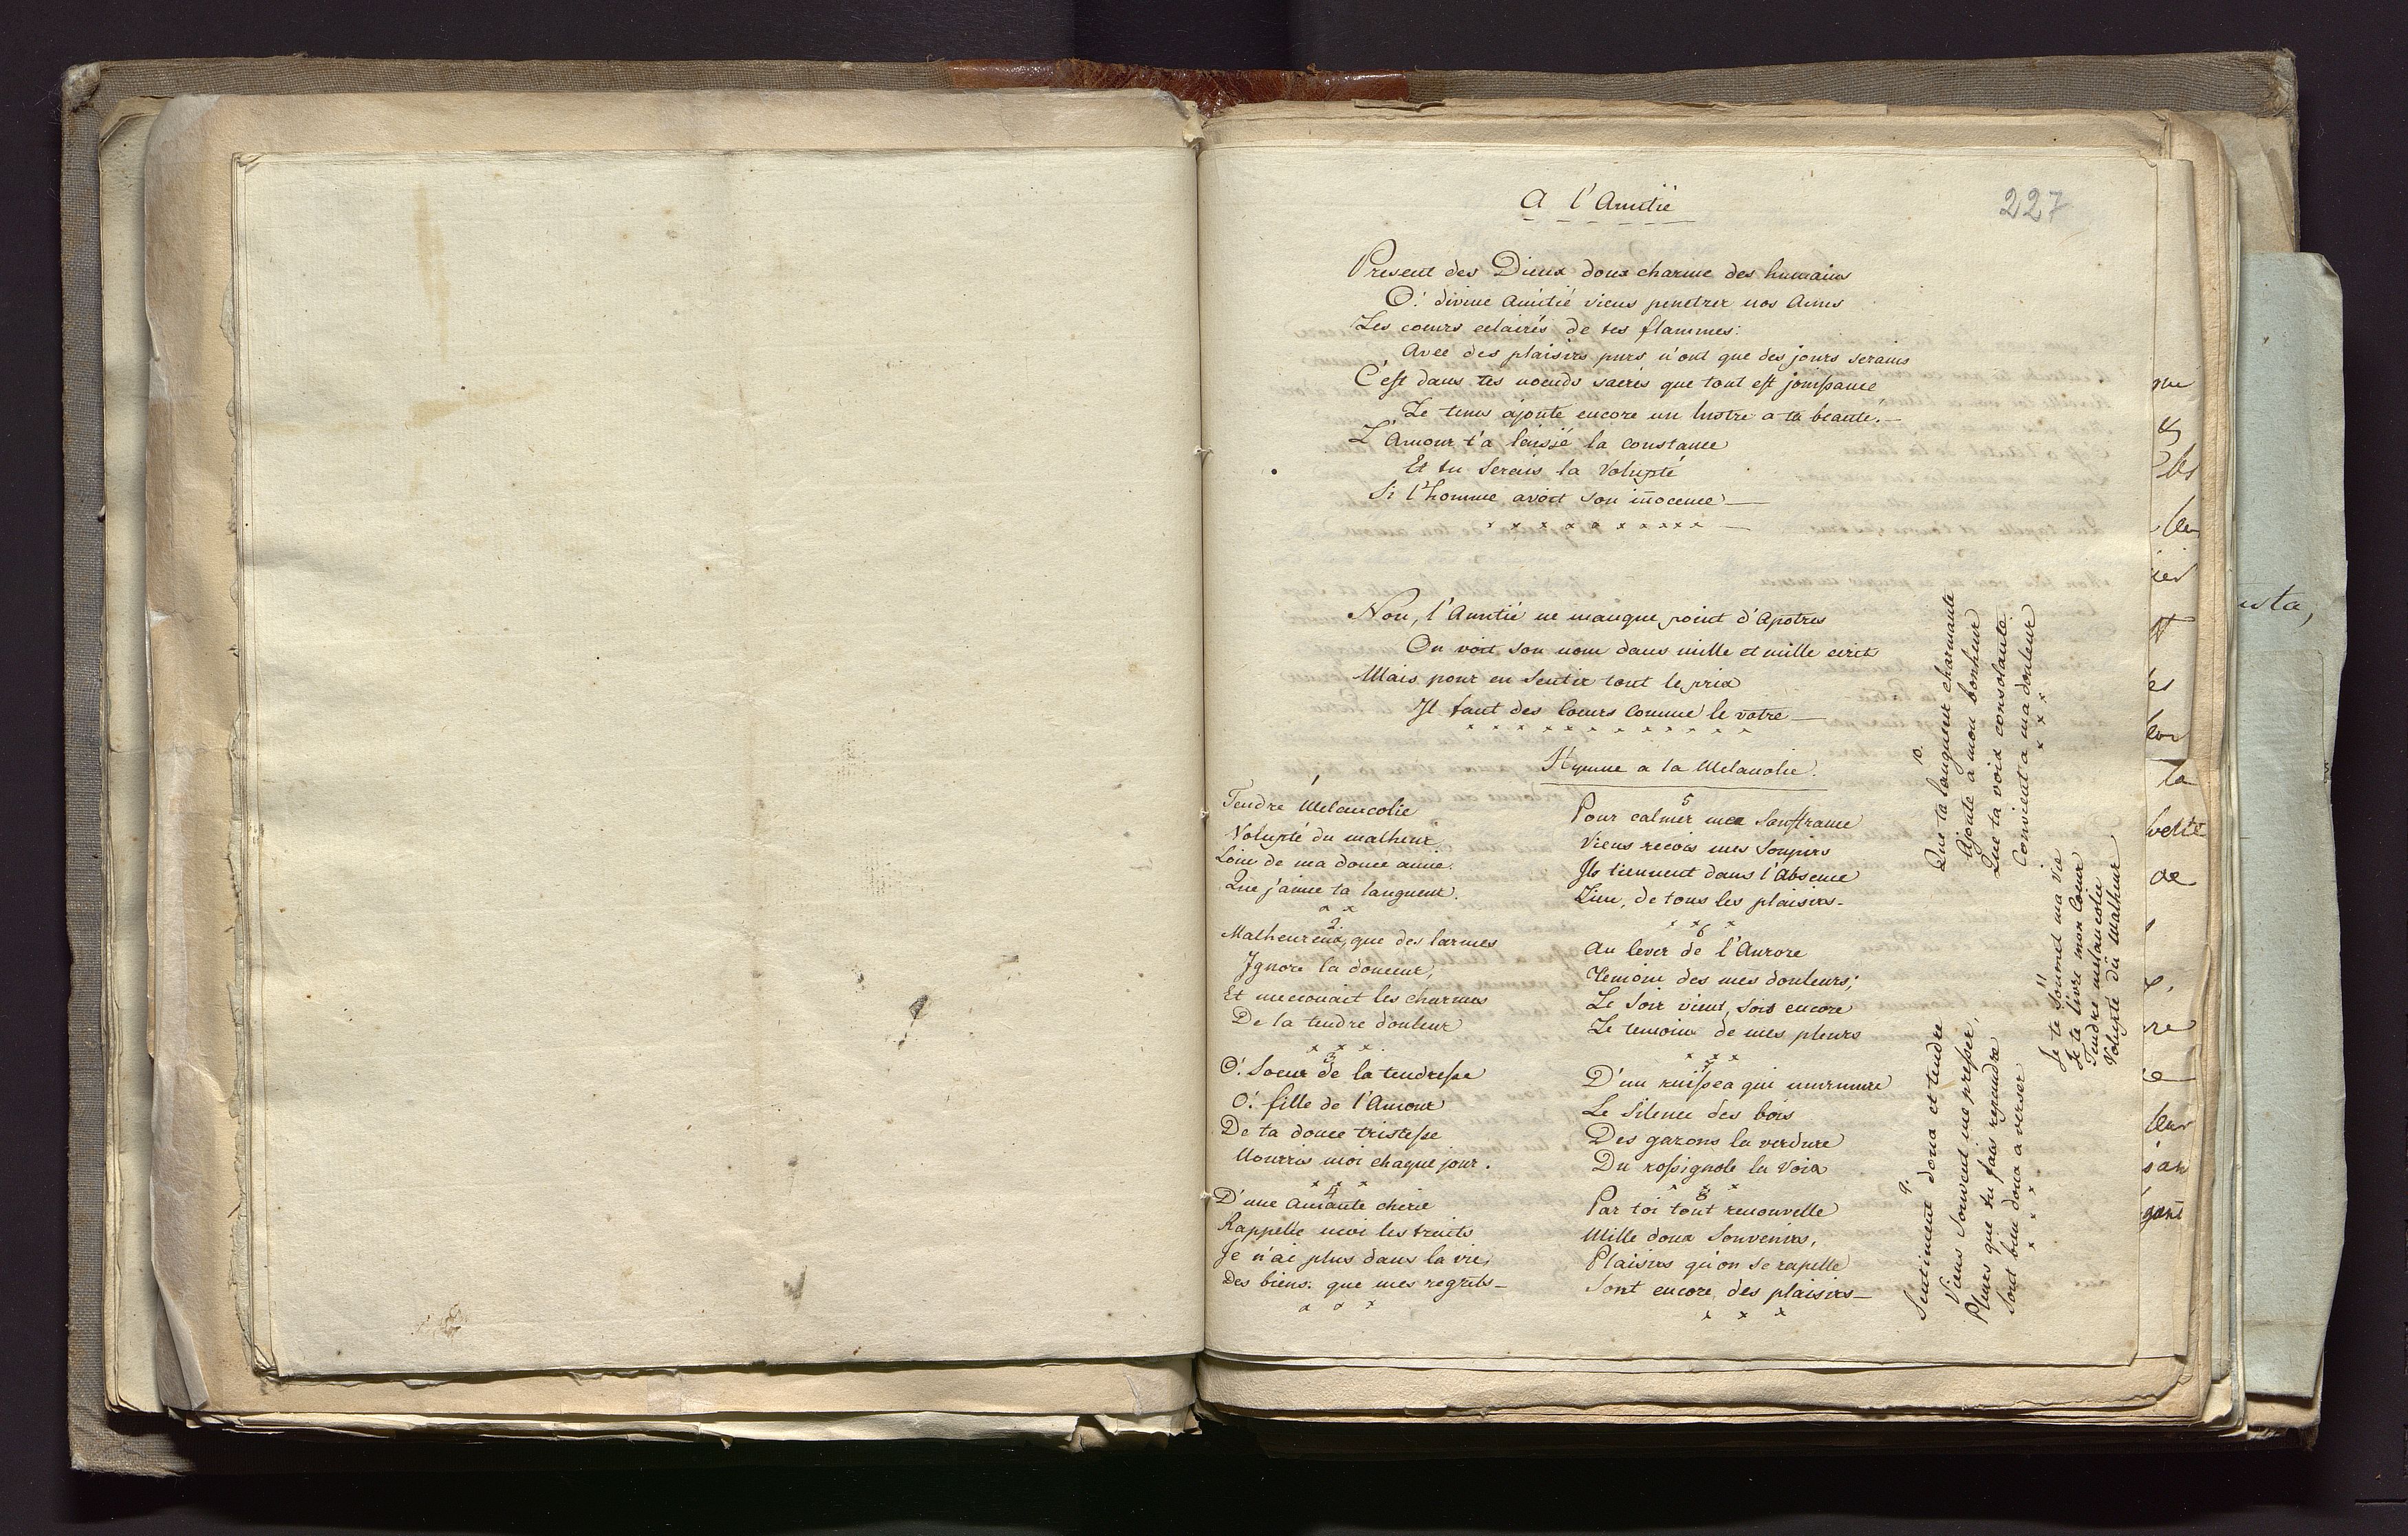 227
A l'Amitié
Present des Dieux doux charme des humains
O! divine Amitié viens penetrer nos Ames
Les coeurs eclairés de tes flammes:
Avec des plaisirs purs n'ont que des jours serains
C'est dans tes noeuds sacrés que tout est jouissance
Le tems ajoute encore un lustre a ta beauté.—
L'Amour t'a laissé la constance
Et tu serais la Volupté
Si l'homme avoit son innocence—
x x x x x x x x x x —
Non, l'Amitié ne manque point d'Apotres
On voit son nom dans mille et mille ecrit
Mais pour en sentir tout le prix
Il faut des Coeurs comme le votre—
x x x x x x x x x x x x
Hymne a la Melanolie.
1
Tendre Melancolie
Volupté du malheur
Loin de ma douce amie.
Que j'aime ta langueur.
x x
2.
Malheureux, que des larmes
Ignore la douceur,
Et meconait les charmes
De la tendre douleur
x x x
3
O! Soeur de la tendresse
O! fille de l'Amour
De ta douce tristesse
Nourris moi chaque jour.
x x x
4
D'une Amante cherie
Rappelle moi les traits
Je n'ai plus dans la vie
Des biens. que mes regrets—
x x x
5
Pour calmer ma Souffrance
Viens recois mes Soupirs
Ils tiennent dans l'Absence
Lieu, de tous les plaisirs-
x x x
6
Au lever de l'Aurore
Temoin des mes douleurs;
Le Soir vient, sois encore
Le temoin de mes pleurs
x x x
7
D'un ruissea qui murmure
Le Silence des bois
Des gazons la verdure
Du rossignole la Voix
x x x
8
Par toi tout renouvelle
Mille doux Souvenirs,
Plaisirs qu'on se rapelle
Sont encore des plaisirs—
x x x
9.
Sentiment doux et tendre
Viens souvent me presser,
Pleurs que tu fais repandre
Sont bien doux a verser
x x x
10.
Que ta langueur charmante
Ajoute a mon bonheur
Que ta voix consolante
Convient a ma douleur
x x x
11
Je te soumet ma Vie
Je te livre mon Coeur
Tendre melancolie
Volupté du malheur